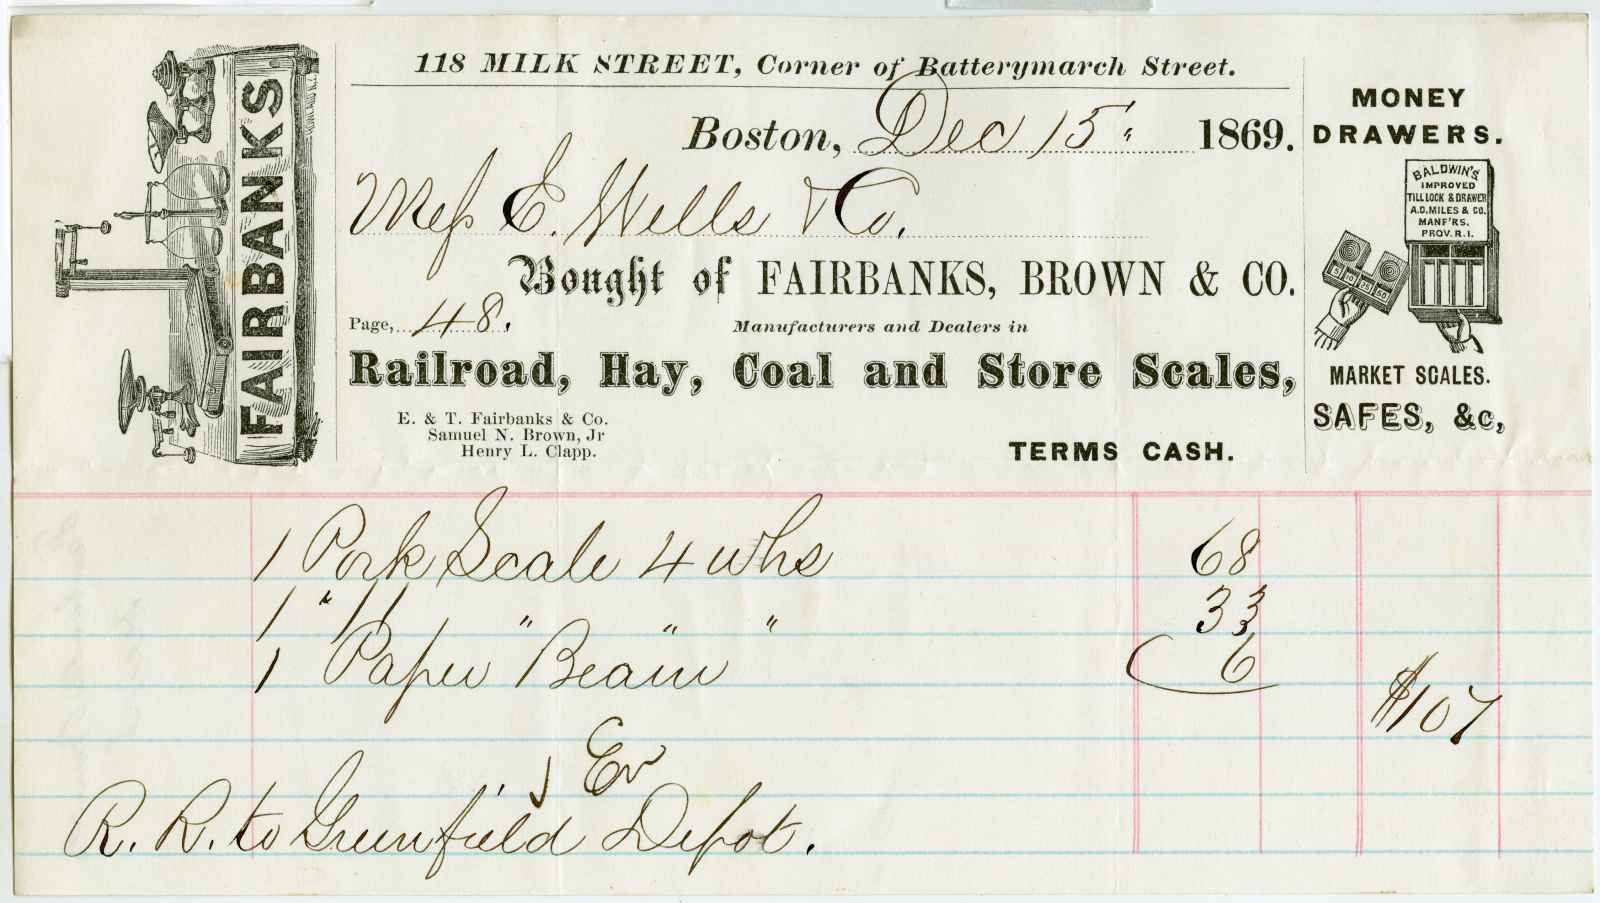 FAIRBANKS
118 MILK STREET, Corner of Batterymarch Street.
Boston, Dec 15, 1869.
Mess E. Wells & Co.
Bought of FAIRBANKS, BROWN & CO.
Page, 48.
Manufacturers and Dealers in
Railroad, Hay, Coal and Store Scales,
E. & T. Fairbanks & Co.
Samuel N. Brown, Jr
Henry L. Clapp.
TERMS CASH.
MONEY
DRAWERS.
BALDWIN'S
IMPROVED
TILL LOCK & DRAWER
A.D. MILES & CO.
MANF'RS.
PROV. R.I.
5 10 25 50
MARKET SCALES.
SAFES, &c,
1 Pork Scale 4 whs 68
1 " 11 " " " 33
1 Paper " Beam 6
$107
R. R. to Greenfield, Depot.